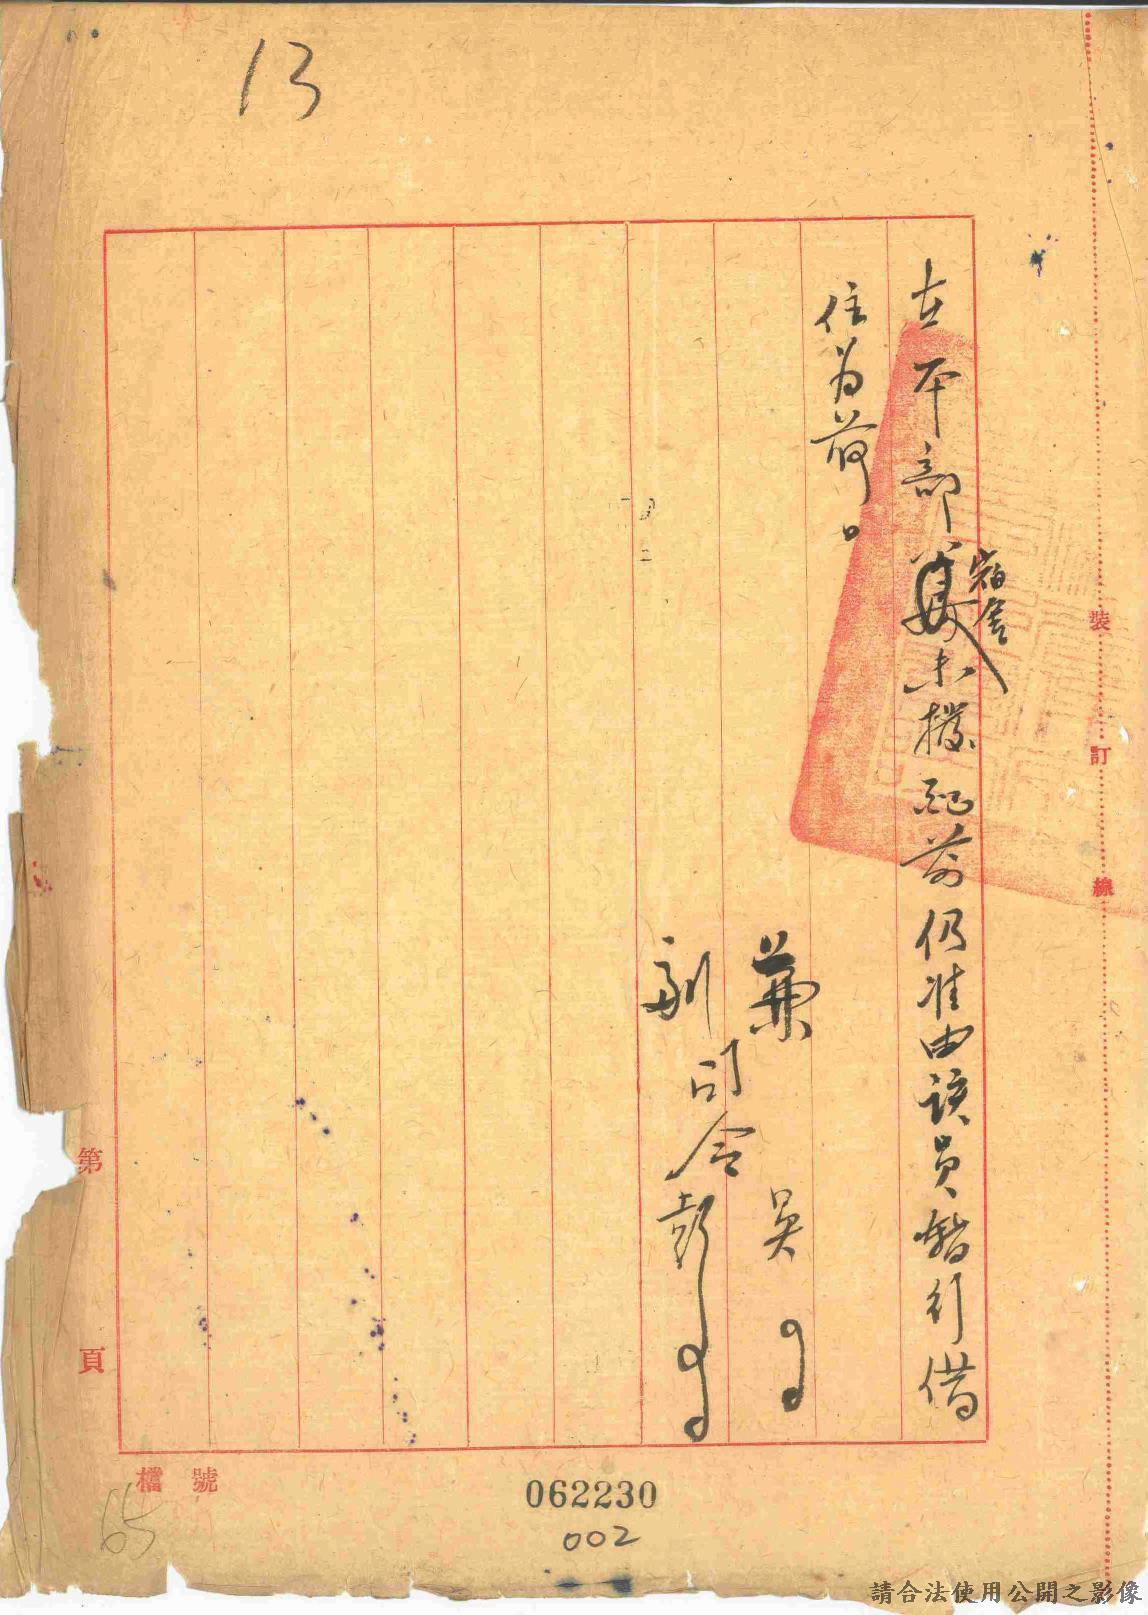 13
在本部宿舍未撥配前仍准由該員暫行借
住為荷。
兼 吳
副司令彭
裝
訂
線
第
頁
檔 號
65
062230
002
請合法使用公開之影像